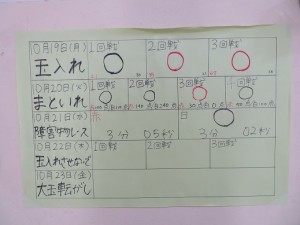 10月19日(月) 1回戦 2回戦 3回戦
玉入れ
10月20日(火) 1回戦 2回戦 3回戦
まといれ
10月21日(水) 日
障害物レース 3分 05秒 3分 02秒
10月22日(木) 1回戦 2回戦 3回戦
玉入れさせないぞ
10月23日(金)
大玉転がし